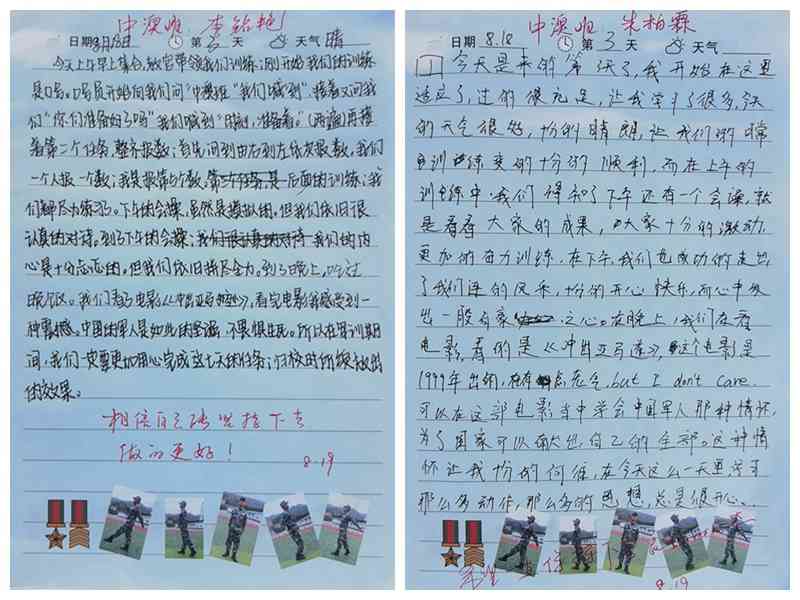 中澳班 李铭艳
日期8月18日 第3天 天气 晴
今天上午早上集合,教官带领我们训练;刚开始我们的训练
是口号。口号员开始向我们问“中澳班”我们喊到“接着又问我
们“你们准备好了吗”我们喊到“时刻准备着。(两遍)再接
着第二个任务,整齐报数;首先问到由右到左依次报数,我们
一个人报一个数;我是报第5个数,后面的训练;我
们都尽力练习。下午的会操,虽然是模拟的。但我们依旧很
认真的对待。到了下午的会操;我们的内
心是十分忐忑的。但我们依旧拼尽全力。到了晚上,吃过
晚饭。我们看了电影《冲出亚马逊》,看完电影我感受到一
种震撼。中国的军人是如此的坚强,不畏惧生死。所以在军训期
间,我们一定要更加用心完成这七天的任务;
的效果。
相信自己 坚持下去
做的更好!
8.19
中澳班 朱柏霖
日期 8.18 第3天 天气
今天是来的第3天了,我开始在这里
适应了,过的很充足,让我学到了很多,今天
的天气很好,十分的晴朗,让我们的日常
训练变的十分的顺利,而在上午的
训练中,我们得知了下午还有一个会操,就
是看看大家的成果,大家十分的激动,
更加的奋力训练,在下午,我们也成功的走出
了我们连的风采,十分的开心快乐,而心中发
出一股自豪之心。在晚上,我们在看
电影,看的是《冲出亚马逊》,这个电影是
1999年出的,but I don't care.
可以在这部电影当中学会中国军人那种情怀,
为了国家可以献出自己的全部。这种情
怀让我十分的向往,在今天这么一天里学了
那么多动作,那么多的思想,总是很开心...
8.19